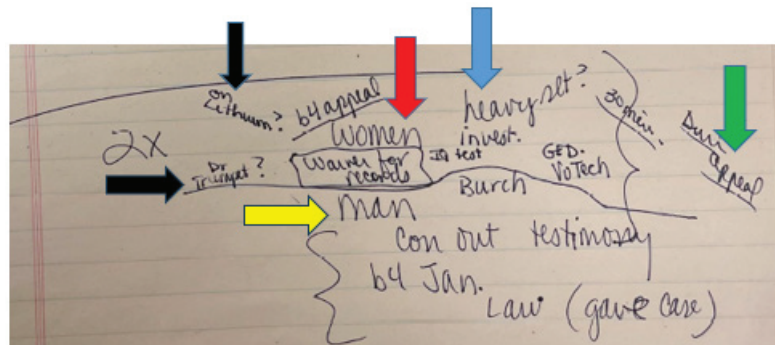 on
Lithium?
b4 appeal
heavy set?
30 min.
2x
women
invest.
appeal
Dr
Trumpet?
Waiver for
records
IQ test
GED.
VoTech
Burch
man
con out testimony
b4 Jan.
Law (gave case)